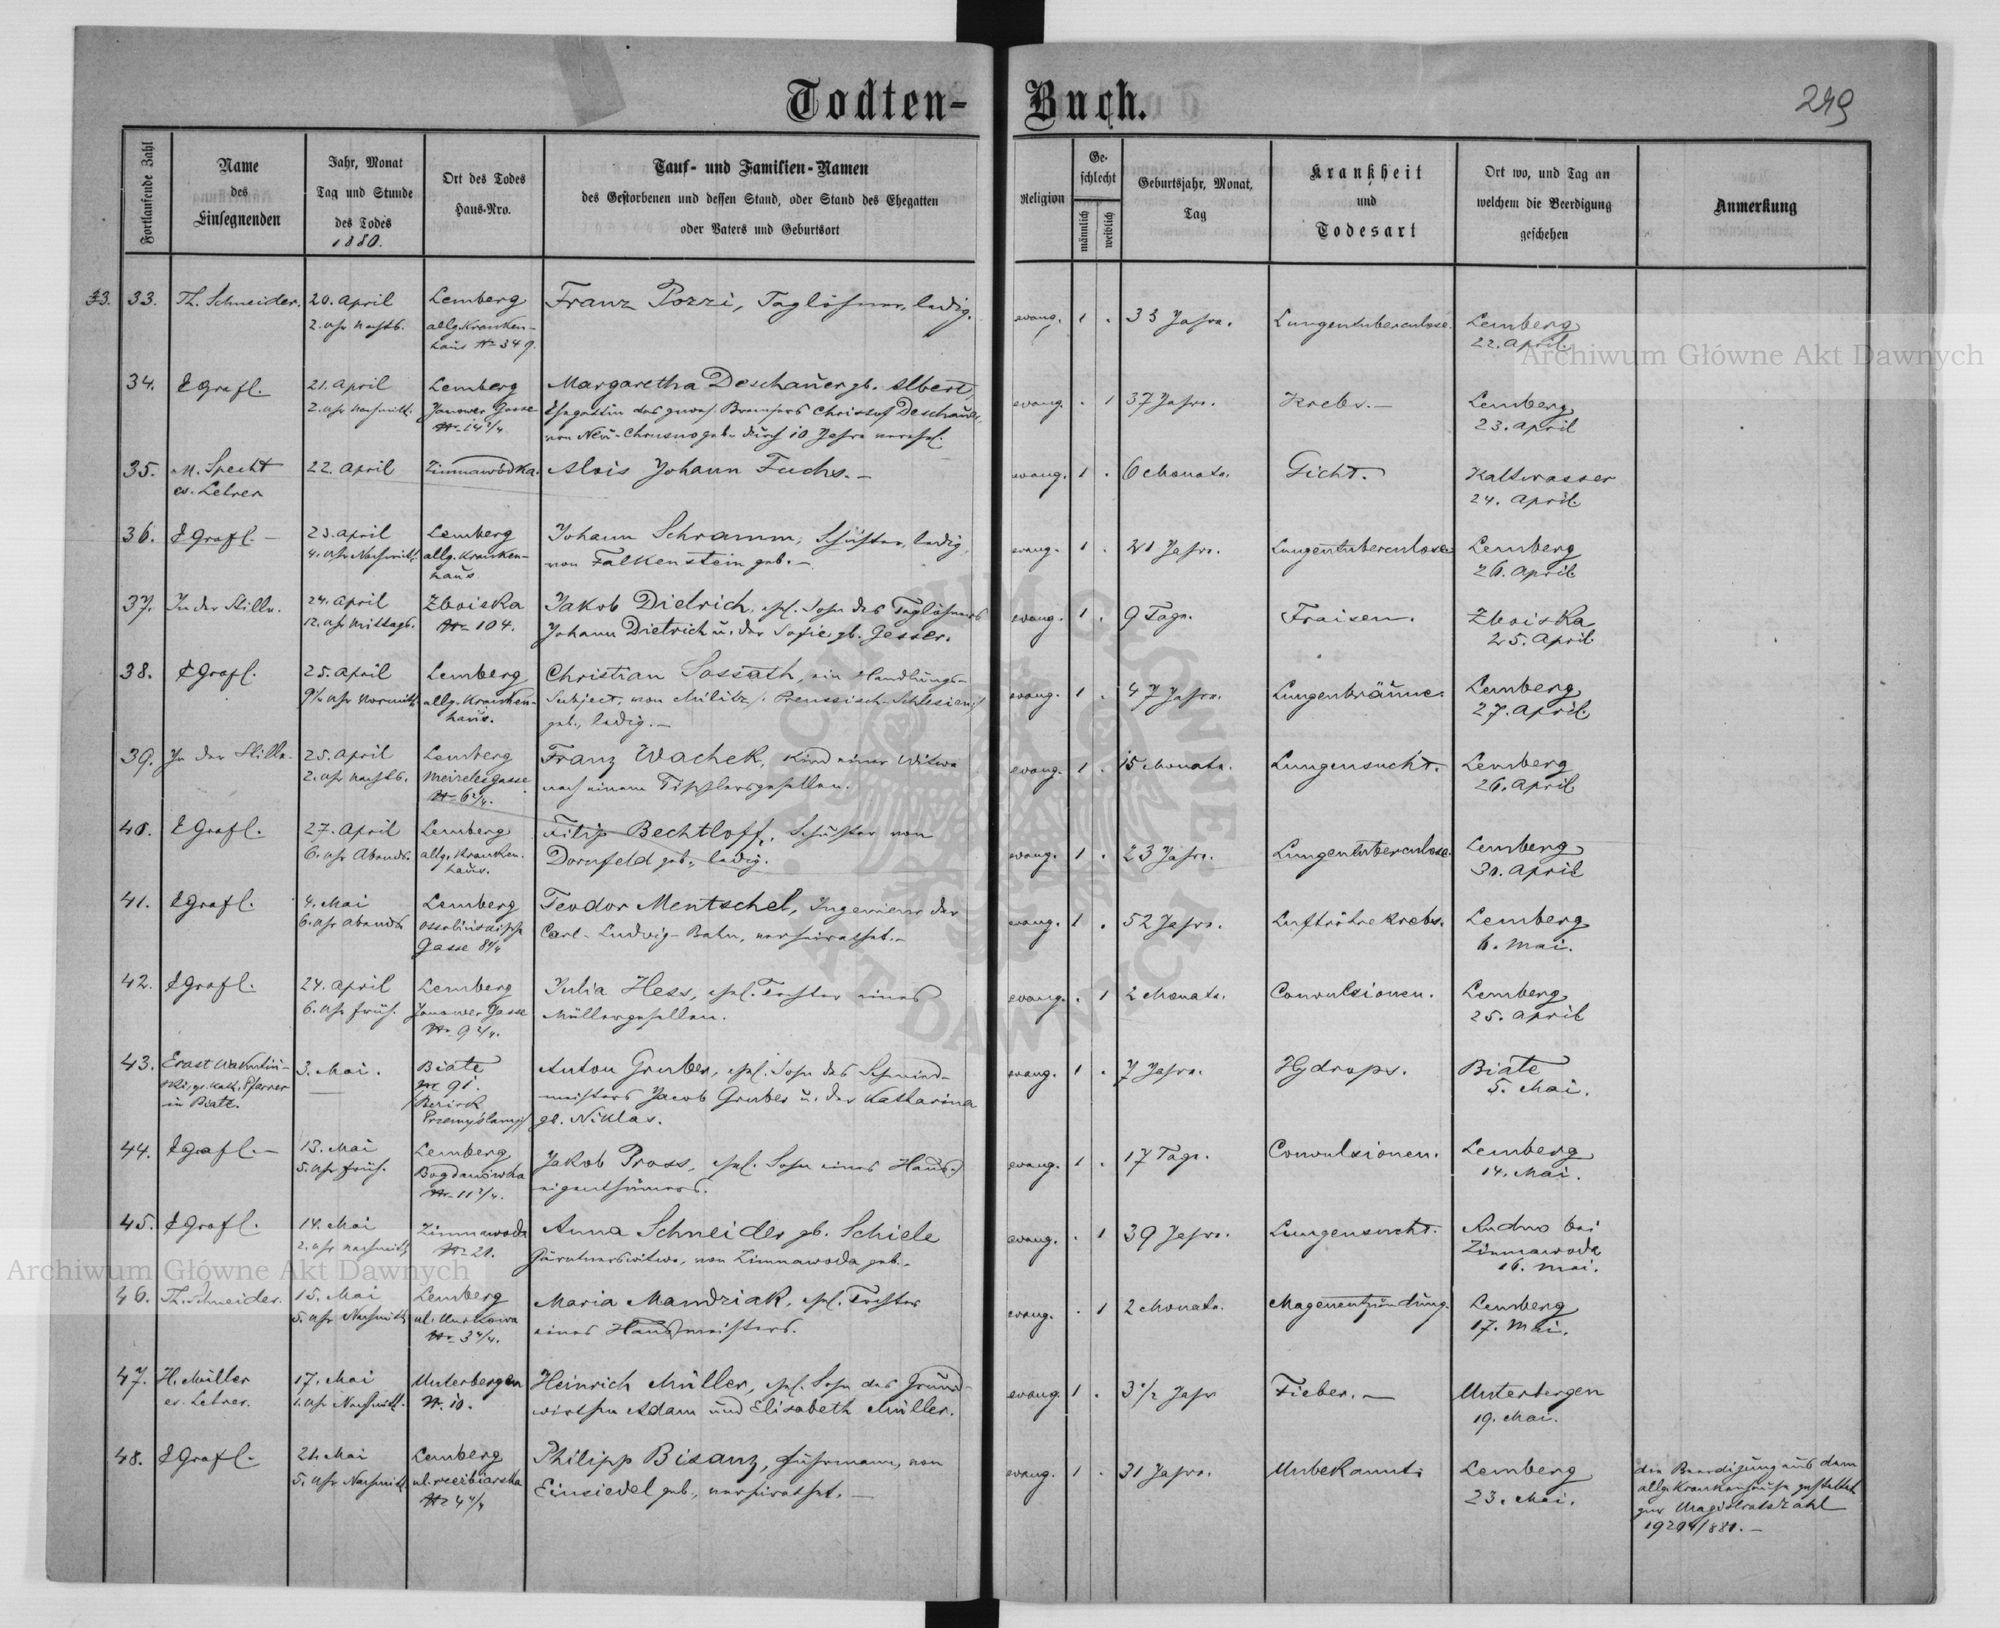 Todten-Buch.
249
Fortlaufende Zahl
Name
des
Einsegnenden
Jahr, Monat
Tag und Stunde
des Todes
1880.
Ort des Todes
Haus-Nro.
Tauf- und Familien-Namen
des Gestorbenen und dessen Stand, oder Stand des Ehegatten
oder Vaters und Geburtsort
Religion
Ge-
schlecht
männlich
weiblich
Geburtsjahr, Monat,
Tag
Krankheit
und
Todesart
Ort wo, und Tag an
welchem die Beerdigung
geschehen
Anmerkung
33. 33. Th. Schneider. 20. April Lemberg Franz Pozzi, Taglöhner, ledig. evang. 1 . 33 Jahre. Lungentuberculose. Lemberg
2. Uhr Nachts. allg. Kranken- 22. April.
haus No 349.
34. E Grafl. 21. April Lemberg Margaretha Deschauer gb. Albert, evang. . 1 37 Jahre. Krebs.— Lemberg
2. Uhr Nachmitt. Janower Gasse Ehegattin des gewes. Christof Deschauer, 23. April
No 14 2/4 von Neu-Chrusno geb. durch 10 Jahre verehel.
35. M. Specht 22. April Zimnawodka. Alois Johann Fuchs.— evang. 1 . 6 Monate. Gicht. Kaltwasser
ev. Lehrer 24. April
36. E Grafl.— 23. April Lemberg Johann Schramm, Schuster, ledig, evang. 1 . 21 Jahre. Lungentuberculose Lemberg
4. Uhr Nachmitt. allg. Kranken- von Falkenstein geb.— 26. April
haus
37. In der Stille. 24. April Zboiska Jakob Dietrich, ehel. Sohn des Taglöhners evang. 1 . 9 Tage. Fraisen. Zboiska
12. Uhr Mittags. No 104. Johann Dietrich u. der Sofie gb. Gesser. 25. April
38. E Grafl. 25. April Lemberg Christian Sossath, ein Handlungs- evang. 1 . 47 Jahre. Lungenbräune. Lemberg
9 1/2 Uhr Vormitt. allg. Kranken- Subject, von Militz /: Preussisch-Schlesien :/ 27. April.
haus. geb., ledig.—
39. In der Stille. 25. April Lemberg Franz Wachek, Kind einer Witwe evang. 1 . 15 Monate. Lungensucht. Lemberg
2. Uhr Nachts. Meiselesgasse nach einem Tischlergesellen. 26. April
No 6 2/4.
40. E Grafl. 27. April Lemberg Filip Bechtloff, Schuster von evang. 1 . 23 Jahre. Lungentuberculose. Lemberg
6. Uhr Abends. allg. Kranken- Dornfeld geb., ledig. 30. April
haus.
41. E Grafl. 4. Mai Lemberg Teodor Mentschel, Ingenieur der evang. 1 . 52 Jahre. Luftröhrekrebs. Lemberg
6. Uhr Abends Carl-Ludwig-Bahn, verheirathet.— 6. Mai.
Gasse 8 4/4
42. E Grafl. 24. April Lemberg Julia Hess, ehel. Tochter eines evang. . 1 2 Monate. Convulsionen. Lemberg
6. Uhr früh. Janower Gasse Müllergesellen. 25. April
No 9 2/4.
43. Erast 3. Mai. Biate Anton Gruber, ehel. Sohn des Schmied- evang. 1 . 7 Jahre. Hydrops. Biate
gr. kath. Pfarrer No 91. meisters Jacob Gruber u. der Katharina 5. Mai.
in Biate. /Bezirk gb. Niklas.
Przemyślany/
44. E Grafl.— 13. Mai Lemberg Jakob Pross, ehel. Sohn eines Haus- evang. 1 . 17 Tage. Convulsionen. Lemberg
5. Uhr früh. Bogdanówka eigenthümers. 14. Mai.
No 11 2/4.
45. E Grafl. 14. Mai Zimnawoda Anna Schneider gb. Schiele evang. . 1 39 Jahre. Lungensucht. Rudno bei
2. Uhr Nachmitt. No 21. Gärtnerswitwe, von Zimnawoda geb.. Zimnawoda
16. Mai.
46. Th. Schneider. 15. Mai Lemberg Maria Mandziak, ehel. Tochter evang. . 1 2 Monate. Magenentzündung. Lemberg
5. Uhr Nachmitt. eines Hausmeisters. 17. Mai.
No 3 4/4.
47. H. Müller 17. Mai Unterbergen Heinrich Müller, ehel. Sohn des Grund- evang. 1 . 3 1/2 Jahr Fieber.— Unterbergen
ev. Lehrer. 1. Uhr Nachmitt. N. 10. wirthen Adam und Elisabeth Müller. 19. Mai.
48. E Grafl. 21. Mai Lemberg Philipp Bisanz, Fuhrmann, von evang. 1 . 31 Jahre. Unbekannt. Lemberg die Beerdigung aus dem
5. Uhr Nachmitt. Einsiedel geb., verheirathet.— 23. Mai. allg. Krankenhause gestattet
No 4 4/4 zur Magistratszahl
19204/880.—
Archiwum Główne Akt Dawnych
Archiwum Główne Akt Dawnych
ARCHIWUM GŁÓWNE AKT DAWNYCH